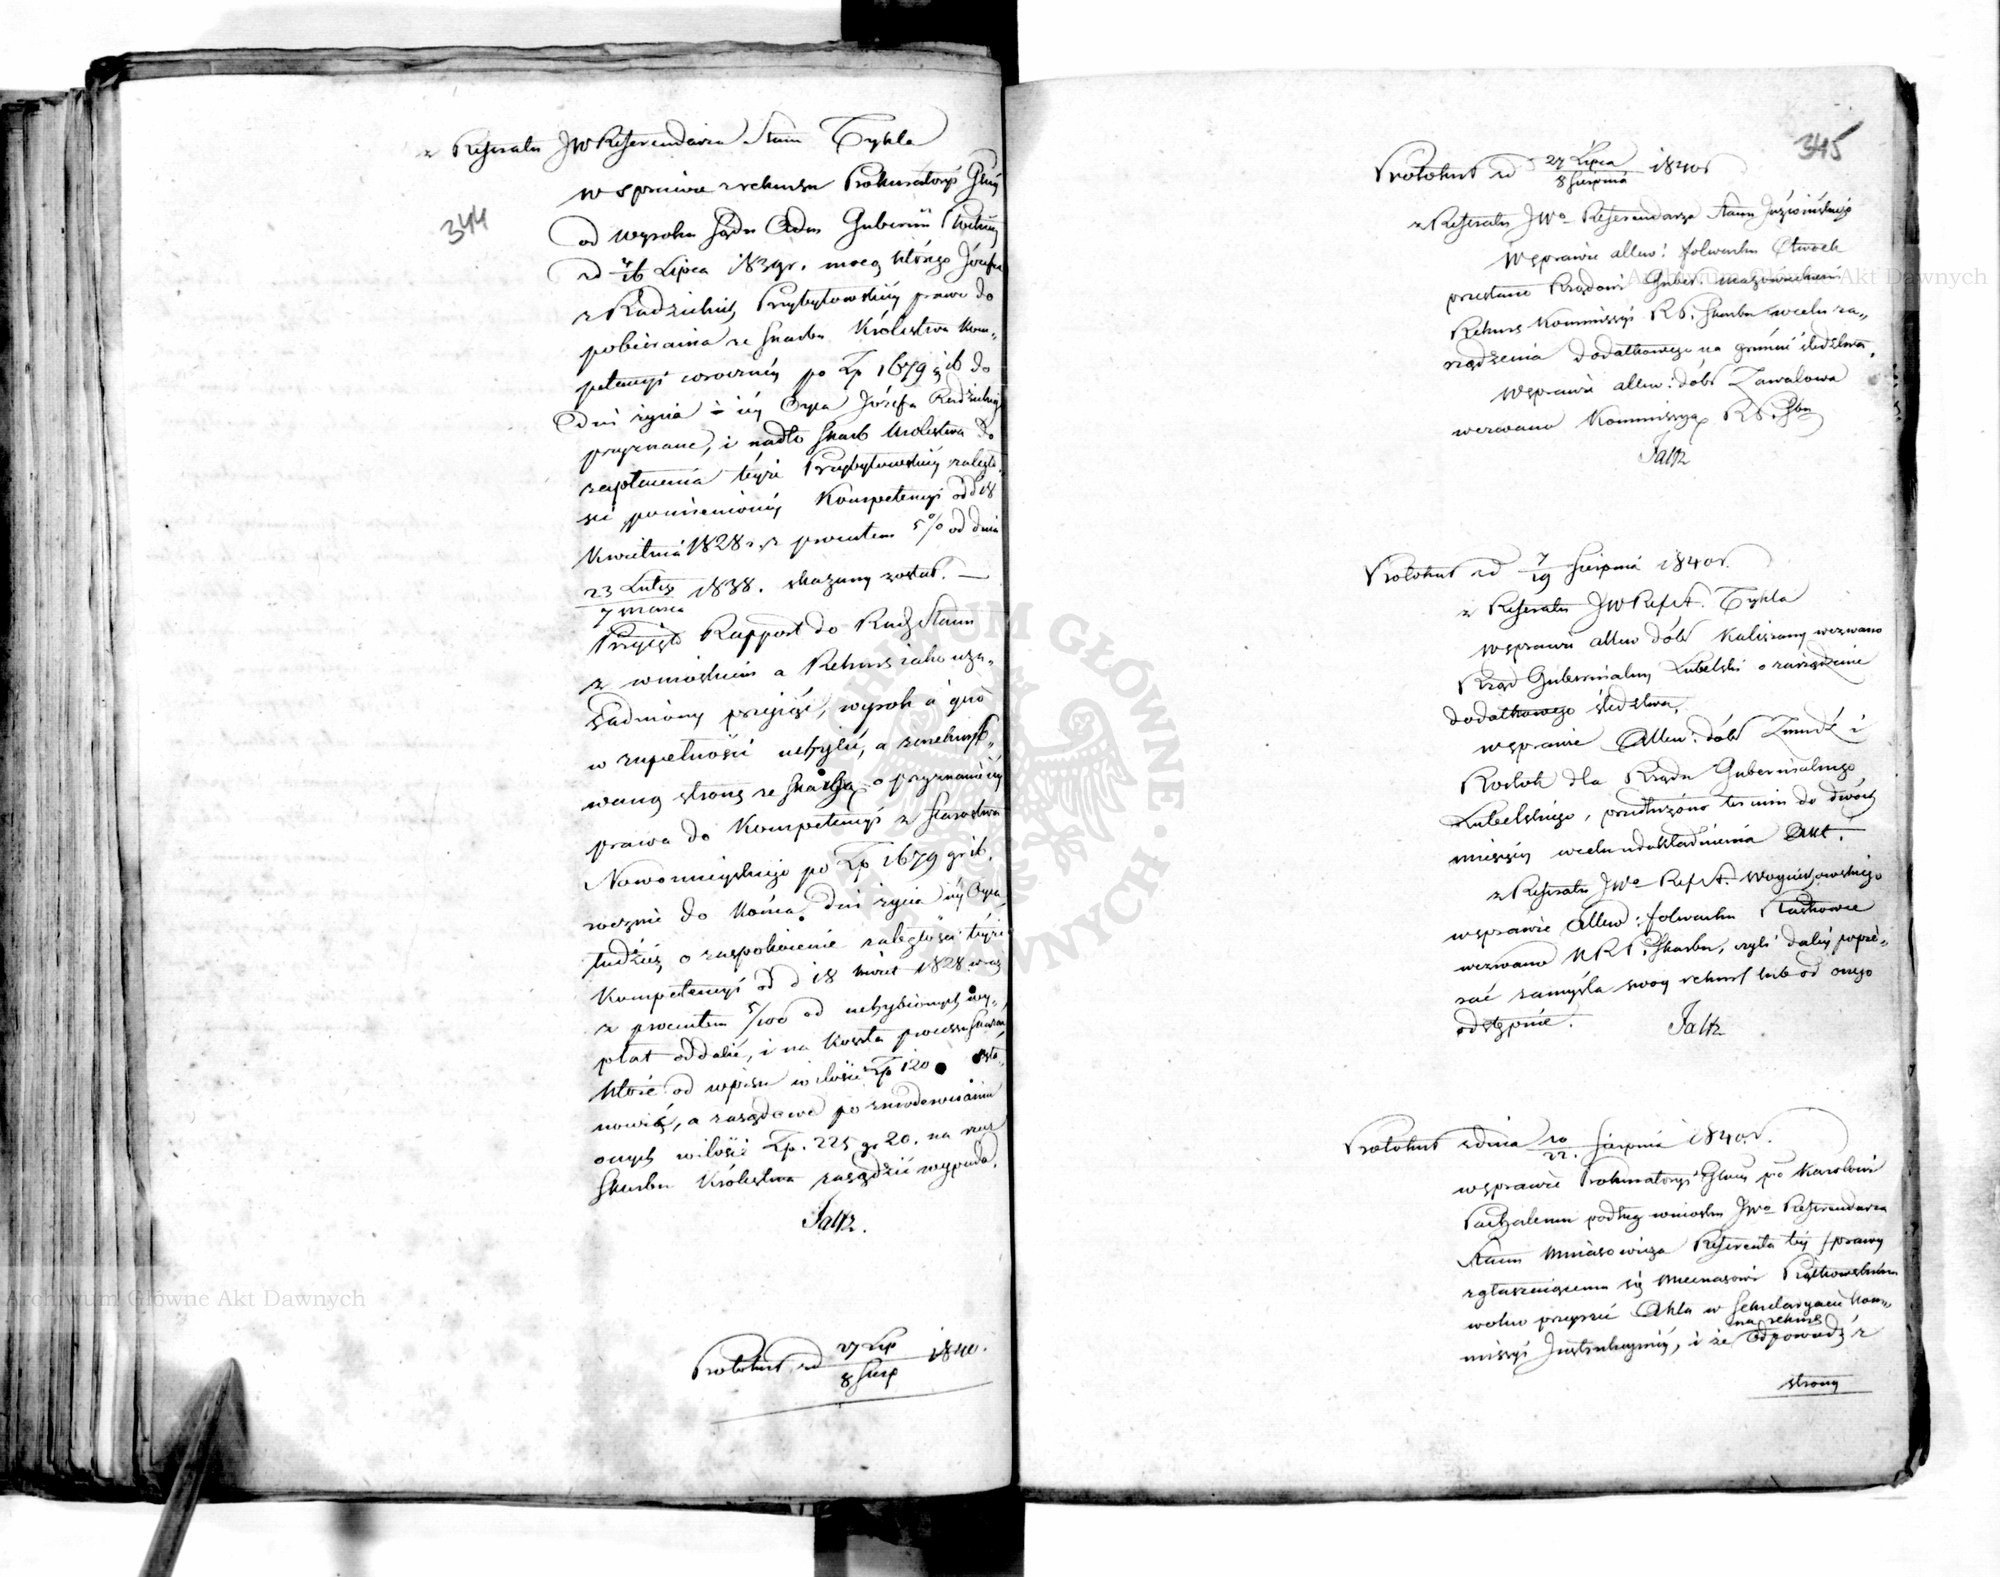 344
z Referatu JW Referendarza Stanu Tykla
w sprawie z rekursu Prokuratoryi Głnéy
od wyroku Sądu Adm Gubernii
od 4/16 Lipca 1839 r. mocą którego Józefie
z Radzickich Przybytowskiéy prawo do
pobierania ze Skarbu Królestwa Kom-
petencyi corocznéy po Zp 1679 g 16 do
Dni życia iéy Oyca Józefa Radzickiego
przyznane, i nadto Skarb Królestwa do
zapłacenia téyże Przybytowskiéy zaległo-
ści pomienionéy Kompetencyi od d 18
Kwietnia 1828 r. z procentem 5% od dnia
23 Lutego / 7 Marca 1838. skazany został. —
Przyięto Rapport do Rady Stanu
z wnioskiem a Rekurs iako uza-
sadniony przyiąć, wyrok a quo
w zupełności uchylić, a zarekurso-
waną stronę ze skargą o przyznanie iéy
prawa do Kompetencyi z Starostwa
Nowomieyskiego po Zp 1679 gr 16.
rocznie do końca dni życia iéy Oyca,
tudzież o zaspokoienie zaległości téyże
Kompetencyi od d 18 Kwiet 1828 wraz
z procentem 5/100 od uchybionych wy-
płat oddalić, i na koszta processu Skarbu
które od wpisu w ilości Zp 120 usta-
nowić, a zasądzone po zmoderowaniu
onych w ilości Zp. 225 gr 20. na rzecz
Skarbu Królestwa zasądzić wypada.
Saltz.
Protokuł od 27 Lip / 8 Sierp 1840.
345
Protokuł od 27 Lipca / 8 Sierpnia 1840 r
z Referatu JWo Referendarza Stanu Józwińskiego
W sprawie allew: folwarku Otwock
przesłano Rządowi Guber: Mazowieckiemu
Rekurs Kommissyi R P. Skarbu w celu za-
rządzenia dodatkowego na gruncie śledztwa.
W sprawie allew: dóbr Zawalowa
wezwano Kommissyą R P. Sbu
Saltz
Protokuł od 7/19 Sierpnia 1840 r.
z Referatu JW Ref St. Tykla
w sprawie allew dóbr Kaliszany wezwano
Rząd Gubernialny Lubelski o zarządzenie
dodatkowego śledztwa,
w sprawie Allew: dóbr Żmudź i
Roskosz dla Rządu Gubernialnego
Lubelskiego, przedłużono termin do dwóch
miesięcy w celu udokładnienia Akt.
z Referatu JWo Ref St. Woyciechowskiego
w sprawie Allew: folwarku
wezwano K R P. Skarbu, czyli daléy popie-
rać zamyśla swóy rekurs lub od onego
odstąpić.
Saltz
Protokuł z dnia 10/22. Sierpnia 1840 r.
w sprawie Prokuratoryi Głnéy pko Karolowi
podług wniosku JWo Referendarza
Stanu Referenta téy sprawy
zgłaszaiącemu się Mecenasowi Piątkowskiemu
wolno przeyrzeć Akta w Sekretaryacie Kom-
missyi Instrukcyjnéy, i że odpowiedź z
na rekurs
strony
Archiwum Główne Akt Dawnych
Archiwum Główne Akt Dawnych
ARCHIWUM GŁÓWNE AKT DAWNYCH